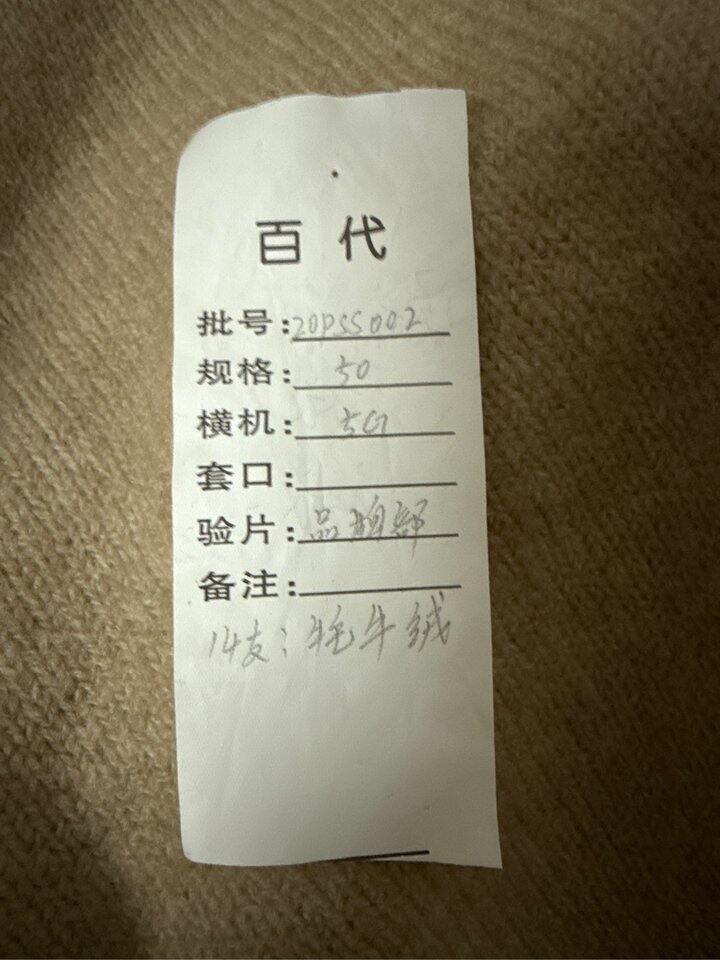 百代
批号:20PSS002
规格: 50
横机: 5G
套口:
验片: 品
备注:
牦牛绒